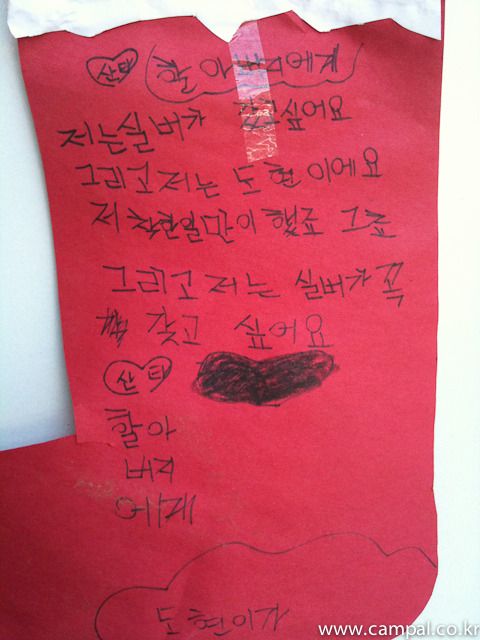 산타 할아버지에게
저는실버가 갖고싶어요
그리고 저는 도현이에요
저 착한일 만이 했죠 그죠
그리고 저는 실버가 꼭
갖고 싶어요
산타
할아
버지
에게
도현이가
www.campal.co.kr